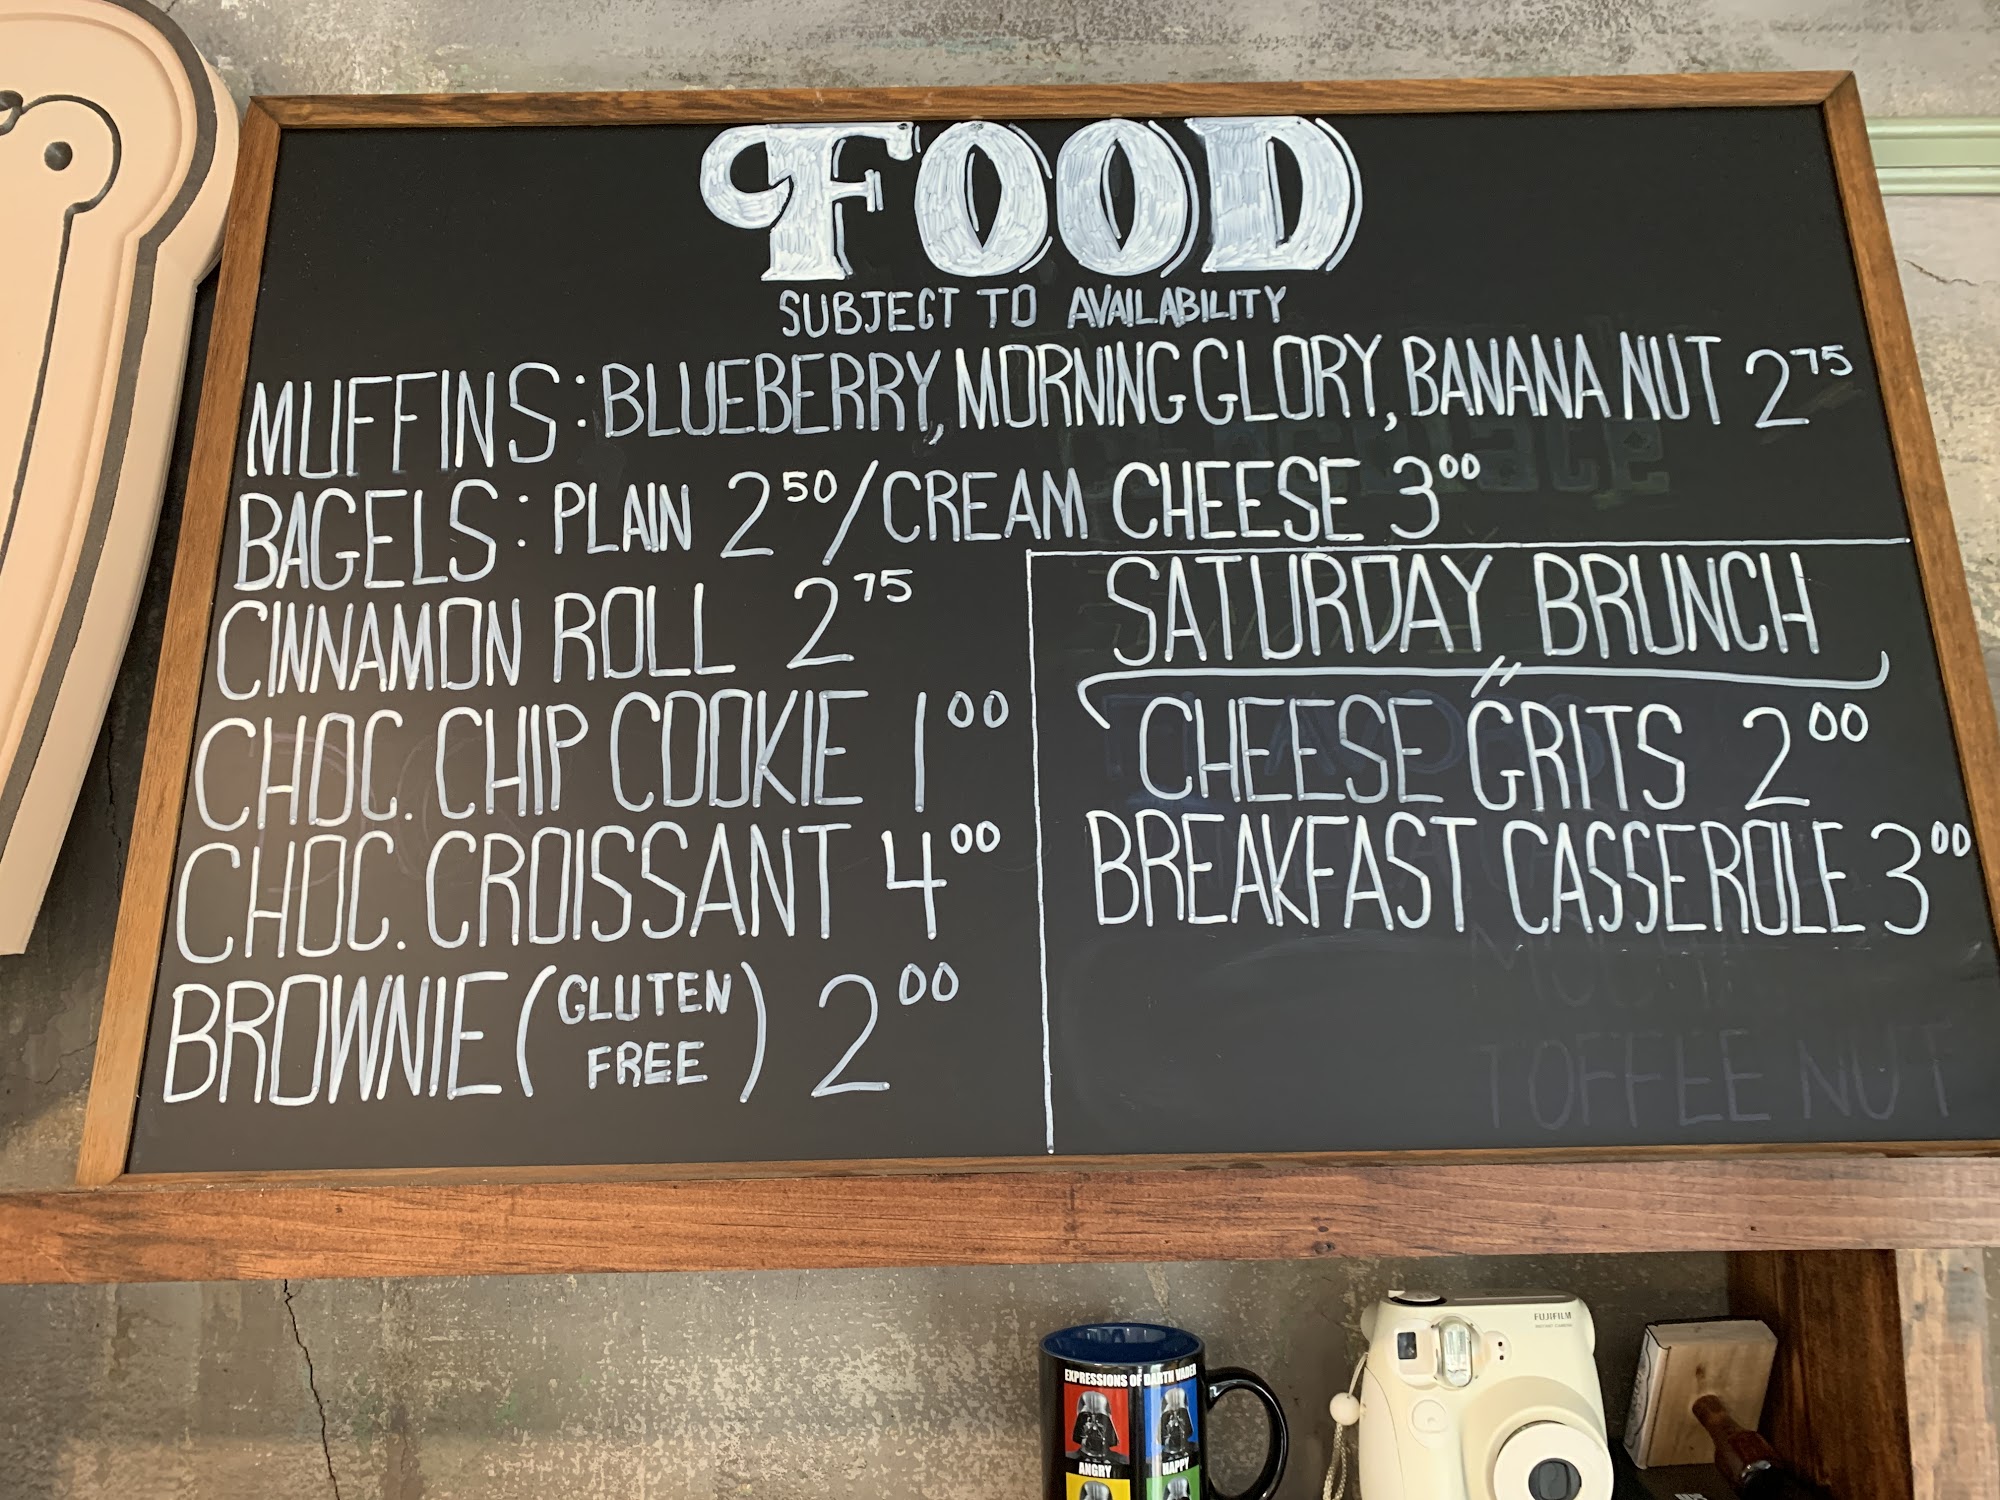 FOOD
SUBJECT TO AVAILABILITY
MUFFINS: BLUEBERRY, MORNING GLORY, BANANA NUT 2 75
BAGELS: PLAIN 2 50/CREAM CHEESE 3 00
CINNAMON ROLL 2 75
CHOC. CHIP COOKIE 1 00
CHOC. CROISSANT 4 00
BROWNIE (GLUTEN FREE) 2 00
SATURDAY BRUNCH
CHEESE GRITS 2 00
BREAKFAST CASSEROLE 3 00
TOFFEE NUT
EXPRESSIONS OF DARTH VADER
ANGRY HAPPY
FUJIFILM